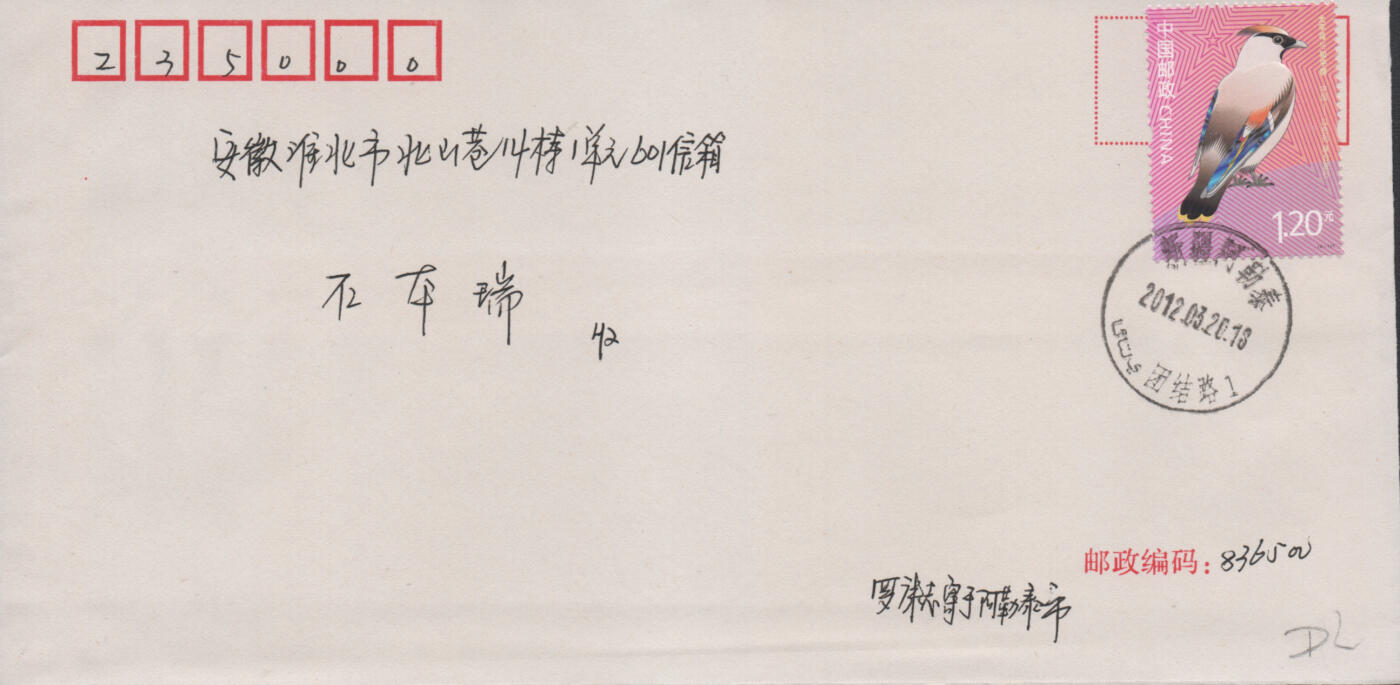 235000
中国邮政 CHINA
1.20元
安徽淮北市北山巷14栋1单元601信箱
石本瑞
收
新疆阿勒泰
2012.03.20.18
团结路1
邮政编码：836500
寄于阿勒泰市
DL